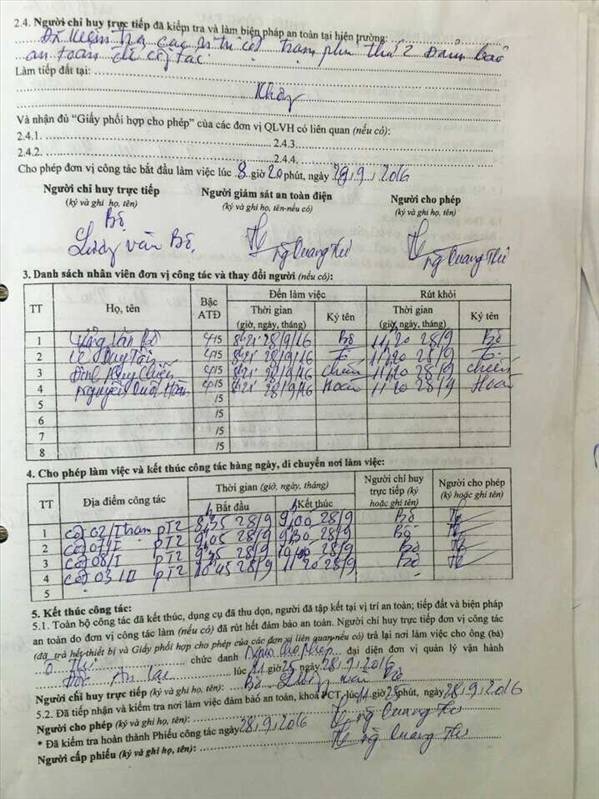 2.4. Người chỉ huy trực tiếp đã kiểm tra và làm biện pháp an toàn tại hiện trường:
Đã kiểm tra các vị trí cột trạm phú thứ 2 Đảm bảo
an toàn để công tác
Làm tiếp đất tại:
Không
Và nhận đủ "Giấy phối hợp cho phép" của các đơn vị QLVH có liên quan (nếu có):
2.4.1. 2.4.3.
2.4.2. 2.4.4.
Cho phép đơn vị công tác bắt đầu làm việc lúc 8 giờ 20 phút, ngày 28/9/2016
Người chỉ huy trực tiếp Người giám sát an toàn điện Người cho phép
(ký và ghi họ, tên) (ký và ghi họ, tên-nếu có) (ký và ghi họ, tên)
Bộ
văn Bộ Quang Thi Quang Thi
3. Danh sách nhân viên đơn vị công tác và thay đổi người (nếu có):
TT Họ, tên Bậc ATĐ Đến làm việc Rút khỏi
Thời gian (giờ, ngày, tháng) Ký tên Thời gian (giờ, ngày, tháng) Ký tên
1 4/5 8h25' 28/9/16 Bộ 11h20 28/9 Bộ
2 Lê Duy Tài 4/5 8h25' 28/9/16 11h20 28/9
3 Đinh Chiến 4/5 8h25' 28/9/16 chiến 11h20 28/9 chiến
4 Nguyễn Hoàn 4/5 8h25' 28/9/16 Hoàn 11h20 28/9 Hoàn
5 /5
6 /5
7 /5
8 /5
4. Cho phép làm việc và kết thúc công tác hàng ngày, di chuyển nơi làm việc:
TT Địa điểm công tác Thời gian (giờ, ngày, tháng) Người chỉ huy trực tiếp (ký hoặc ghi tên) Người cho phép (ký hoặc ghi tên)
Bắt đầu Kết thúc
1 cột 02/ Trạm PT2 8h35 28/9 9h00 28/9 Bộ
2 cột 07/I PT2 9h05 28/9 9h30 28/9 Bộ
3 cột 08/I PT2 28/9 28/9 Bộ
4 cột 03 PT2 10h45 28/9 11h20 28/9 Bộ
5
5. Kết thúc công tác:
5.1. Toàn bộ công tác đã kết thúc, dụng cụ đã thu dọn, người đã tập kết tại vị trí an toàn; tiếp đất và biện pháp
an toàn do đơn vị công tác làm (nếu có) đã rút hết đảm bảo an toàn. Người chỉ huy trực tiếp đơn vị công tác
(đã trả hết thiết bị và Giấy phối hợp cho phép của các đơn vị liên quan-nếu có) trả lại nơi làm việc cho ông (bà)
chức danh Người cho phép đại diện đơn vị quản lý vận hành
An Lạc lúc giờ 25 ngày 28/9/2016
Người chỉ huy trực tiếp (ký và ghi họ, tên): Bộ văn Bộ
5.2. Đã tiếp nhận và kiểm tra nơi làm việc đảm bảo an toàn, khoá PCT, lúc 11 giờ 25 phút, ngày 28/9/2016
Người cho phép (ký và ghi họ, tên): Quang Thi
* Đã kiểm tra hoàn thành Phiếu công tác ngày 28/9/2016
Người cấp phiếu (ký và ghi họ, tên): Quang Thi